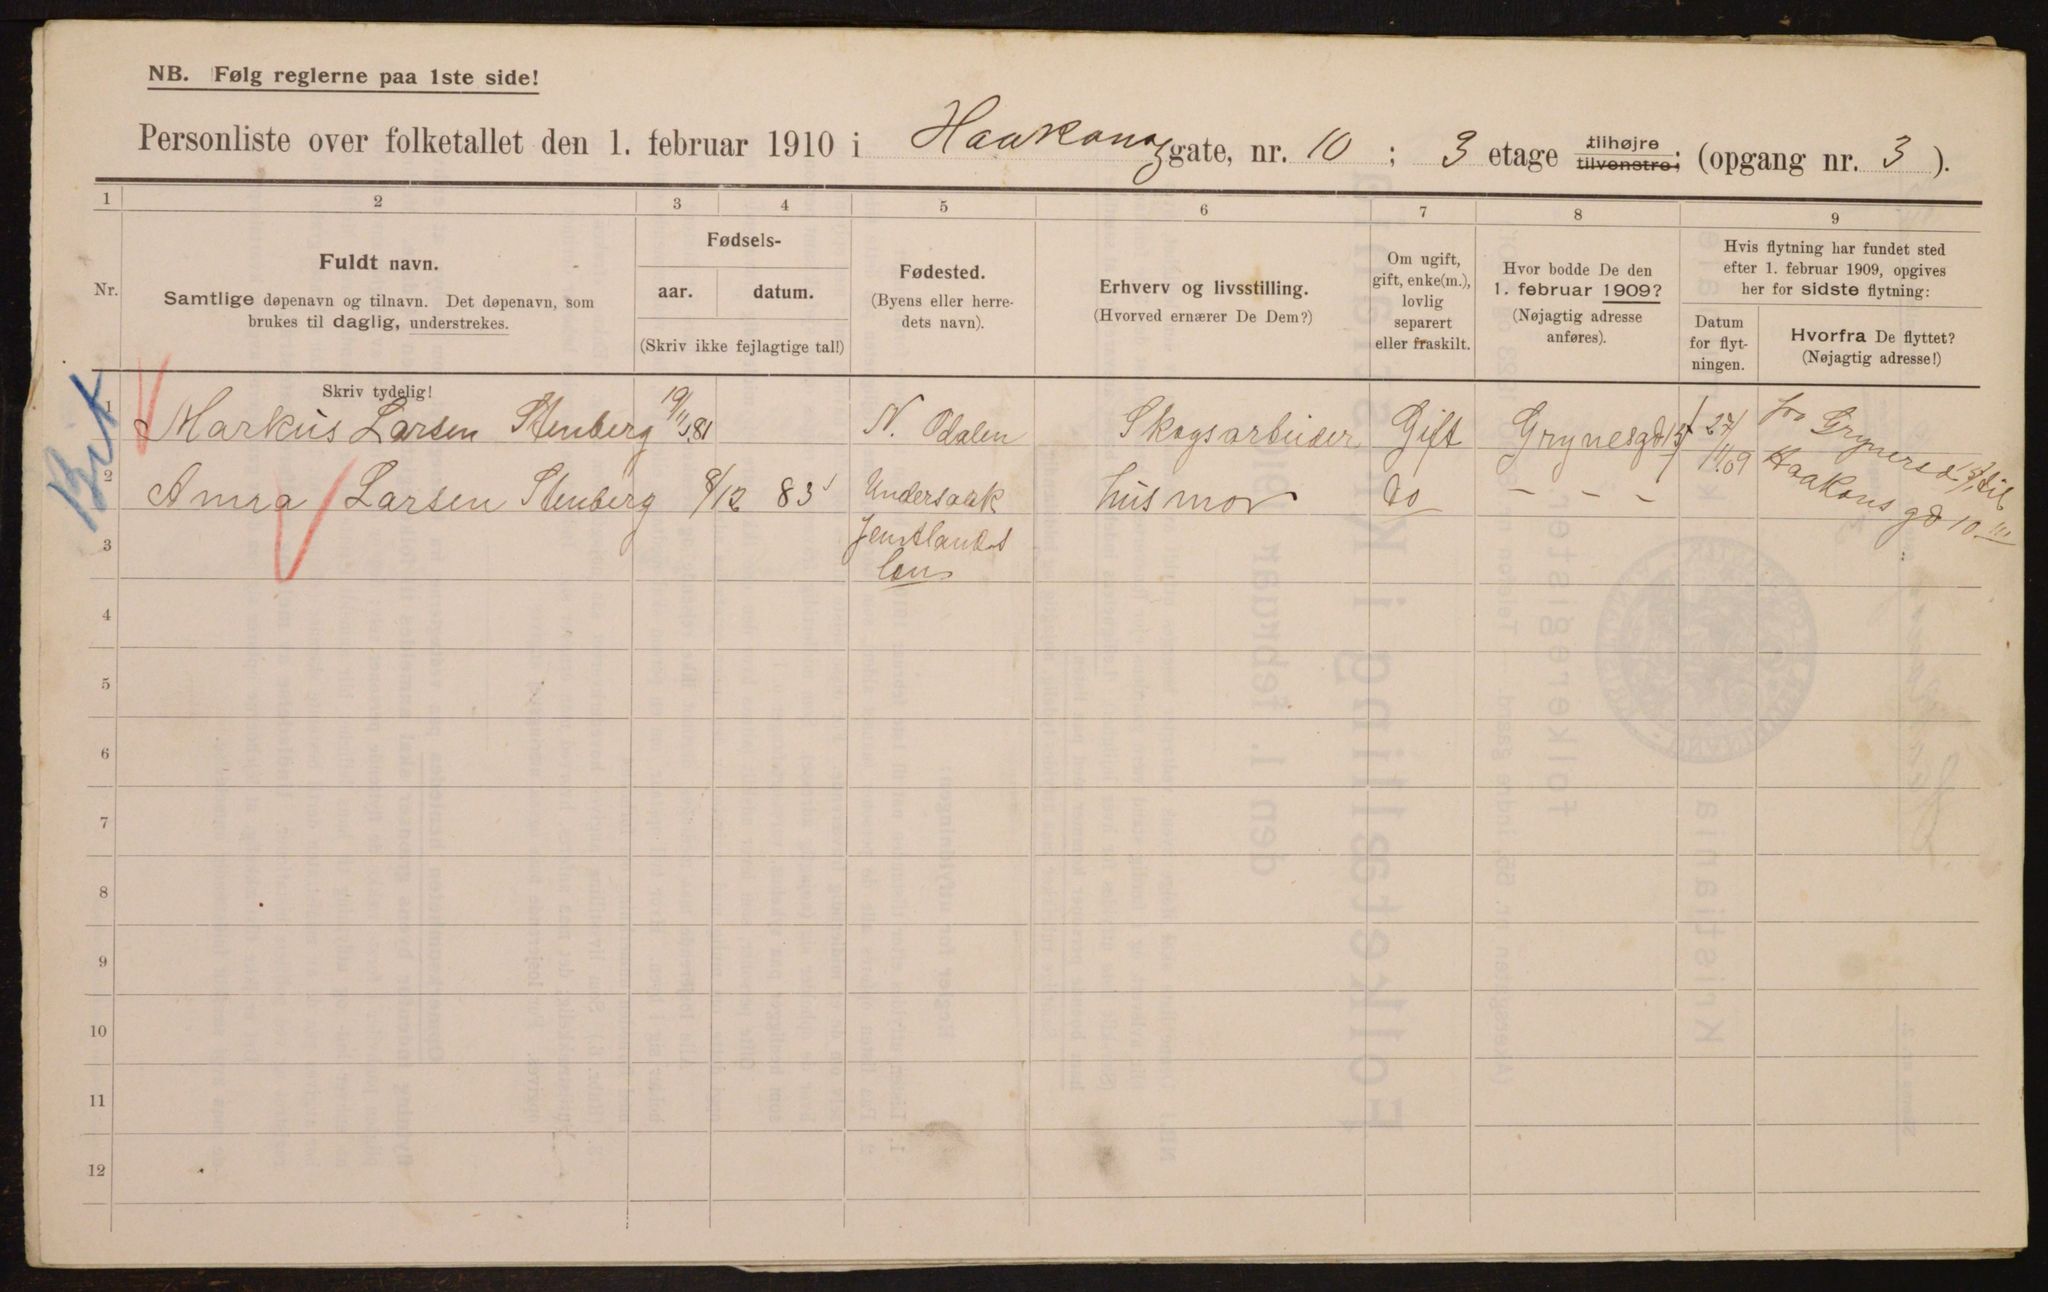 NB. Følg reglerne paa 1ste side!
Personliste over folketallet den 1. februar 1910 i Haakons gate, nr. 10 ; 3 etage tilhøjre tilvenstre; (opgang nr. 3 ).
1 2 3 4 5 6 7 8 9
Nr.
Fuldt navn.
Samtlige døpenavn og tilnavn. Det døpenavn, som
brukes til daglig, understrekes.
Skriv tydelig!
Fødsels-
aar. datum.
(Skriv ikke fejlagtige tal!)
Fødested.
(Byens eller herre-
dets navn).
Erhverv og livsstilling.
(Hvorved ernærer De Dem?)
Om ugift,
gift, enke(m.),
lovlig
separert
eller fraskilt.
Hvor bodde De den
1. februar 1909?
(Nøjagtig adresse
anføres).
Hvis flytning har fundet sted
efter 1. februar 1909, opgives
her for sidste flytning:
Datum
for flyt-
ningen.
Hvorfra De flyttet?
(Nøjagtig adresse!)
1 Markus Larsen Stenberg 19/11 81 N. Odalen Skogsarbeider Gift 27/11 09
2 Larsen Stenberg 8/12 83 Undersaak husmor do - - -
Haakons gd 10 III
3
4
5
6
7
8
9
10
11
12